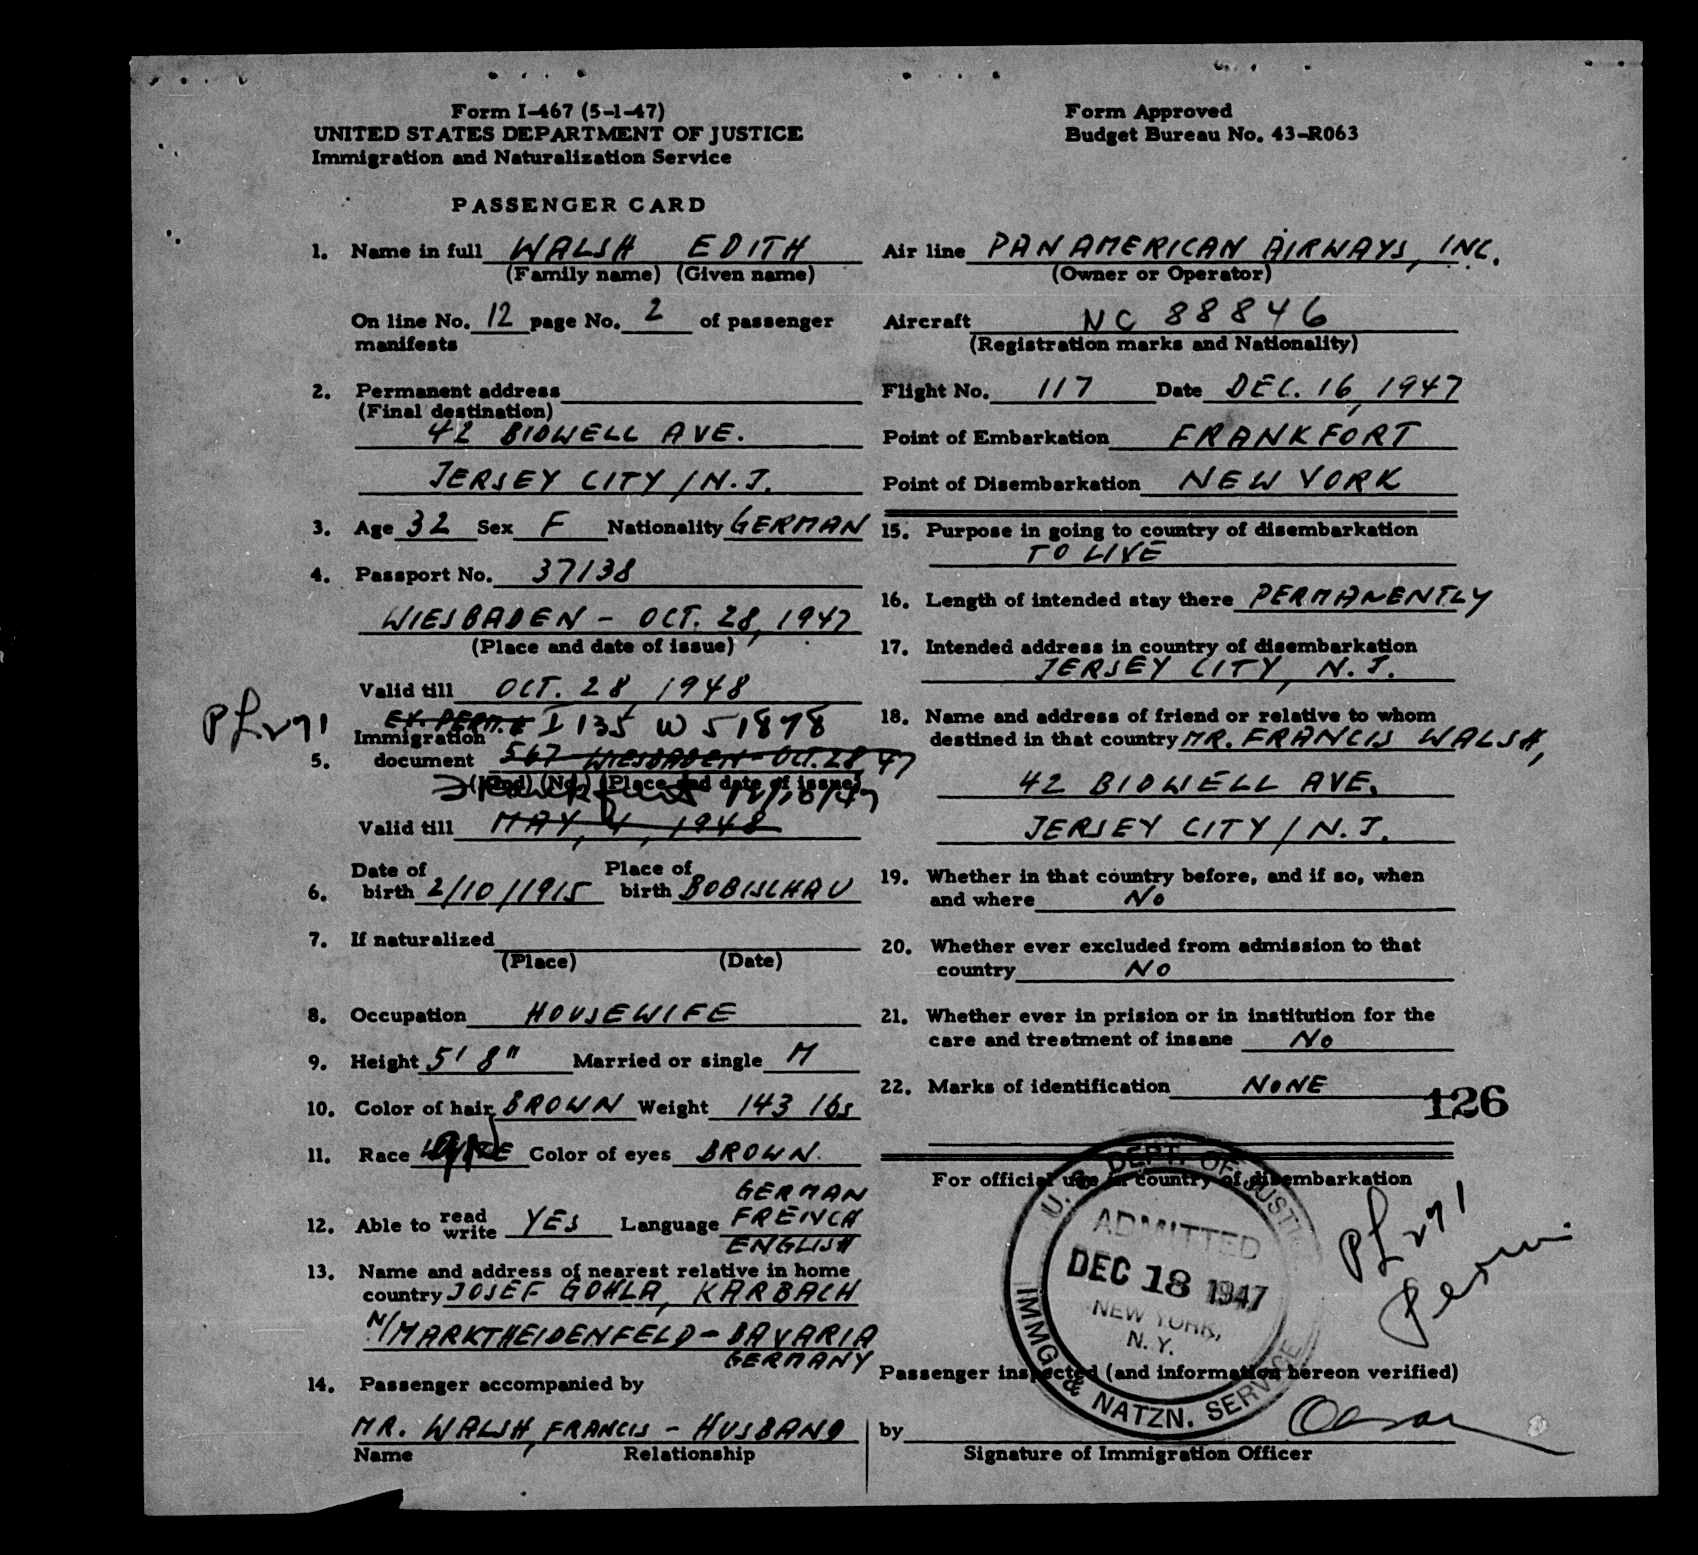 Form I-467 (5-1-47)
UNITED STATES DEPARTMENT OF JUSTICE
Immigration and Naturalization Service
Form Approved
Budget Bureau No. 43-R063
PASSENGER CARD
1. Name in full WALSH EDITH
(Family name) (Given name)
On line No. 12 page No. 2 of passenger
manifests
2. Permanent address
(Final destination)
42 BIDWELL AVE.
JERSEY CITY / N.J.
3. Age 32 Sex F Nationality GERMAN
4. Passport No. 37138
WIESBADEN - OCT. 28, 1947
(Place and date of issue)
Valid till OCT. 28, 1948
EX. PERM. I 135 W 51878
Immigration
5. document 567 WIESBADEN - OCT. 28, 47
(Kind) (No.) (Place and date of issue)
Valid till MAY, 4, 1948
Date of Place of
6. birth 2/10/1915 birth BOBISCHAU
7. If naturalized
(Place) (Date)
8. Occupation HOUSEWIFE
9. Height 5' 8" Married or single M
10. Color of hair BROWN Weight 143 lbs
11. Race WHITE Color of eyes BROWN.
GERMAN
12. Able to read write YES Language FRENCH
ENGLISH
13. Name and address of nearest relative in home
country JOSEF GOHLA, KARBACH
N/MARKTHEIDENFELD - BAVARIA
GERMANY
14. Passenger accompanied by
MR. WALSH, FRANCIS - HUSBAND
Name Relationship
Air line PAN AMERICAN AIRWAYS, INC.
(Owner or Operator)
Aircraft NC 88846
(Registration marks and Nationality)
Flight No. 117 Date DEC. 16, 1947
Point of Embarkation FRANKFORT
Point of Disembarkation NEW YORK
15. Purpose in going to country of disembarkation
TO LIVE
16. Length of intended stay there PERMANENTLY
17. Intended address in country of disembarkation
JERSEY CITY, N.J.
18. Name and address of friend or relative to whom
destined in that country MR. FRANCIS WALSH,
42 BIDWELL AVE,
JERSEY CITY / N.J.
19. Whether in that country before, and if so, when
and where No
20. Whether ever excluded from admission to that
country No
21. Whether ever in prision or in institution for the
care and treatment of insane No
22. Marks of identification NONE
126
For official use in country of disembarkation
U. S. DEPT. OF JUSTICE
ADMITTED
DEC 18 1947
NEW YORK,
N. Y.
IMMG. & NATZN. SERVICE
Passenger inspected (and information hereon verified)
by
Signature of Immigration Officer